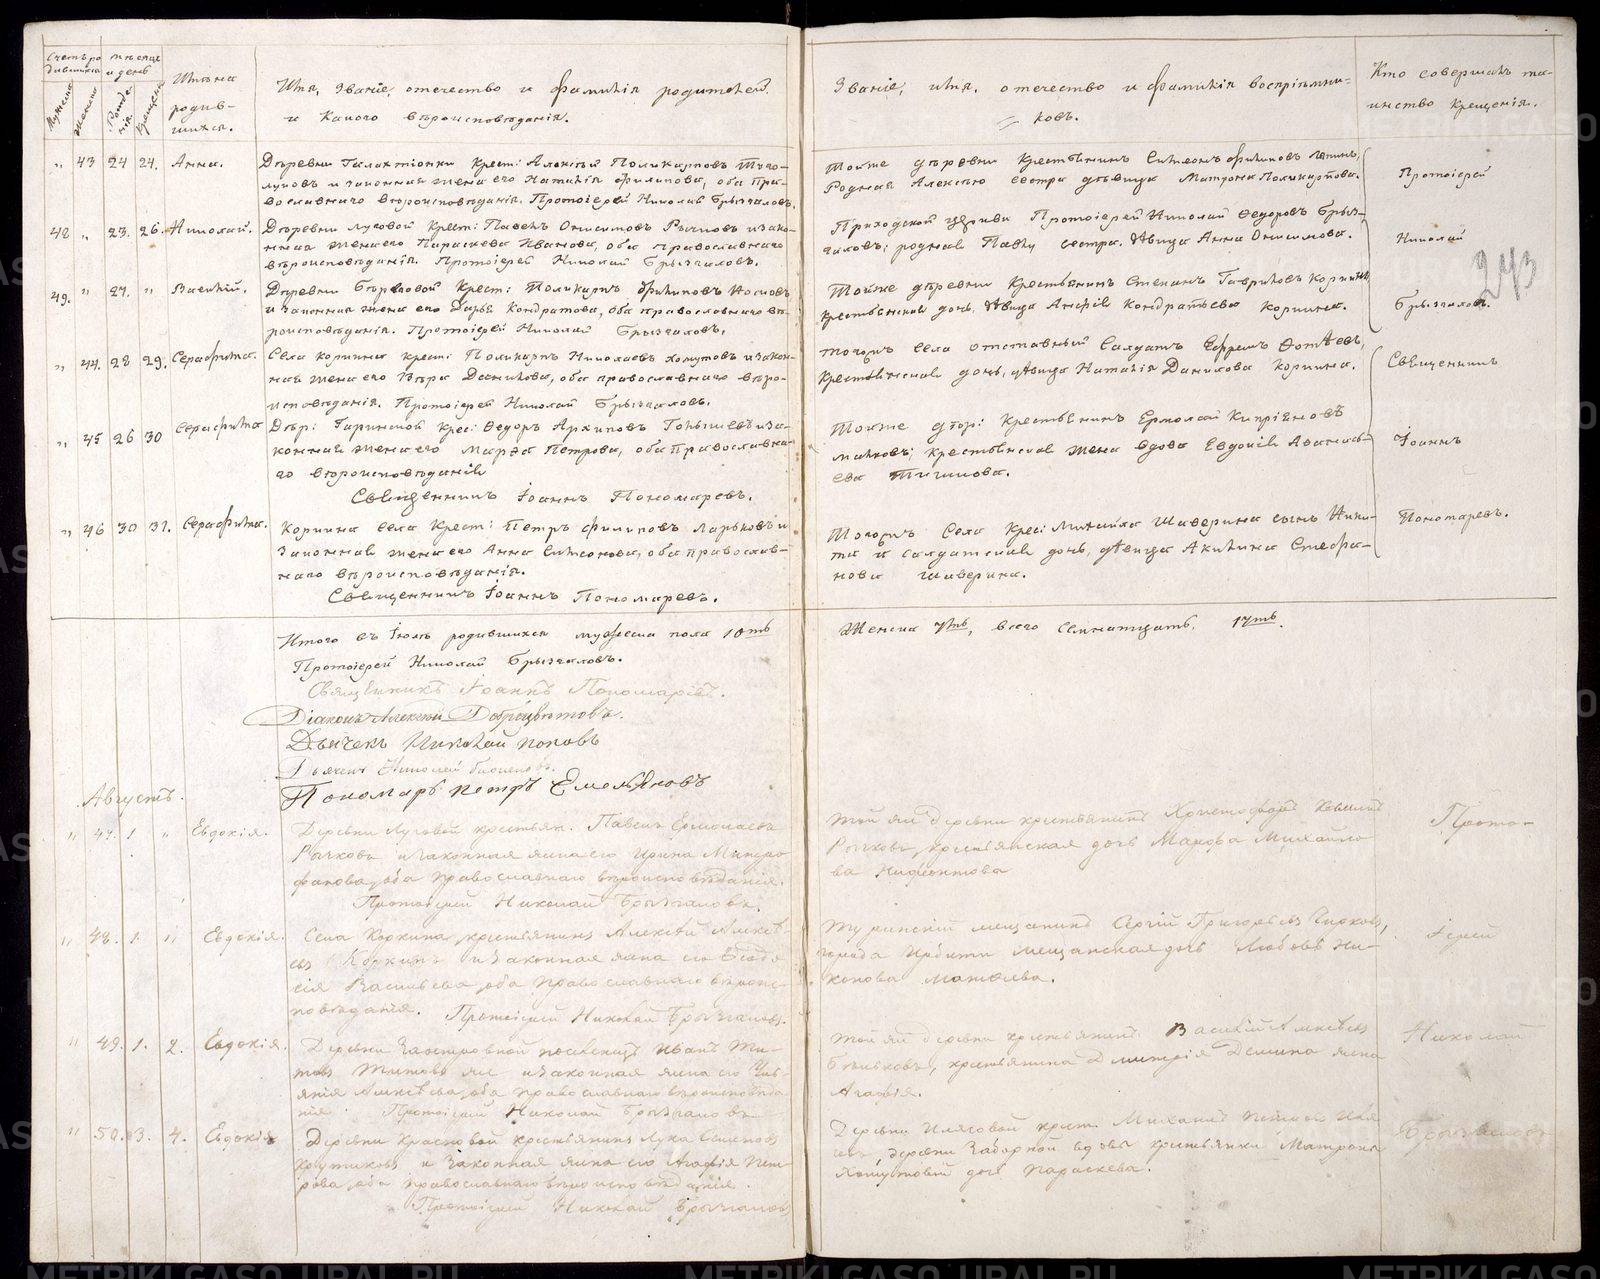 Счетъ родившихся
Мужеска
Женска
Мѣсяцъ и день
Рожденія.
Крещенія.
Имѣна родив-
шихся.
Имя, Званіе, отечество и фамилія родителей.
и Какого вѣроисповѣданія.
Званіе, имя, отечество и фамилія воспріѣмни-
ковъ.
Кто совершалъ та-
инство крещенія.
" 43 24 24. Анна.
Деревни Галактіонки Крест: Алексѣй Поликарповъ
и законная жена его Наталія Филипова, оба Пра-
вославнаго вѣроисповѣданія. Протоіерей Николай Брызгаловъ.
Тойже деревни Крестьянинъ Симеонъ Филиповъ
Родная Алексѣю сестра дѣвица Матрона Поликарпова.
48 " 23. 26. Николай.
Деревни Луговой Крест: Павелъ Онисимовъ Рычковъ и зако-
нная жена его Параскева Иванова, оба православнаго
вѣроисповѣданія. Протоіерей Николай Брызгаловъ.
Приходской церкви Протоіерей Николай Ѳедоровъ Брыз-
галовъ; родная Павлу сестра, дѣвица Анна Онисимова.
49. " 27. " Василій.
Деревни Бѣрковой Крест: Поликарпъ Филиповъ Носковъ
и Законная жена его Дарья Кондратова, оба православнаго вѣ-
роисповѣданія. Протоіерей Николай Брызгаловъ.
Тойже деревни Крестьянинъ Степанъ Гавриловъ Коркинъ,
крестьянская дочь, дѣвица Анфія Кондратьева Коркина.
" 44. 28 29. Серафима.
Села Коркина крест: Поликарпъ Николаевъ Хомутовъ и закон-
ная жена его Вѣра Данилова, оба православнаго вѣро-
исповѣданія. Протоіерей Николай Брызгаловъ.
Тогожъ села отставный Салдатъ Ефремъ Фотѣевъ,
Крестьянская дочь, дѣвица Наталія Данилова Коркина.
" 45 26 30 Серафима
Дер: Гаринской Крес: Ѳедоръ Архиповъ Голышевъ и за-
конная жена его Марѳа Петрова, оба Православна-
го вѣроисповѣданія
Священникъ Іоаннъ Пономаревъ.
Тойже дер: Крестьянинъ Ермолай Кипріяновъ
Мальковъ; крестьянская жена вдова Евдокія Аѳанась-
ева Тигинова.
" 46 30 31. Серафима.
Коркина села Крест: Петръ Филиповъ Ларьковъ и
Законная жена его Анна Симеонова, оба православ-
наго вѣроисповѣданія.
Священникъ Іоаннъ Пономаревъ.
Тогожъ Села Крес: Михайла Шаверина сынъ Ники-
та и салдатская дочь, дѣвица Акилина Стефа-
нова Шаверина.
Протоіерей
Николай
Брызгаловъ.
Священникъ
Іоаннъ
Пономаревъ.
243
Итого въ Іюлѣ родившихся мужеска пола 10ть
Женска 7мь, всего Семнатцать. 17ть.
Протоіерей Николай Брызгаловъ.
Священникъ Іоаннъ Пономаревъ.
Діаконъ Алексѣй Доброцвѣтовъ.
Дьячекъ Николай Поповъ
Дьячекъ Николай
Пономарь Петръ Емельяновъ
Августъ.
" 47. 1. " Евдокія.
Деревни Луговой крестьян. Павелъ Ермолаевъ
Рычковъ и законная жена его Ирина Митро-
фанова, оба православнаго вѣроисповѣданія.
Протоіерей Николай Брызгаловъ.
Той же деревни крестьянинъ Христофоръ
Рычковъ, крестьянская дочь Марѳа Михайло-
ва Нифонтова
" 48. 1. " Евдокія.
Села Коркина крестьянинъ Алексѣй Алексѣ-
евъ Коркинъ и законная жена его Ѳеодо-
сія Васильева, оба православнаго вѣроис-
повѣданія. Протоіерей Николай Брызгаловъ.
Туринскій мещанинъ Сергій Григорьевъ Чирковъ,
города Ирбити мещанская дочь Любовь Ни-
конова Матвѣева.
" 49. 1. 2. Евдокія.
Деревни Заостровной поселенецъ Иванъ Ти-
товъ Титовъ же и законная жена его
Алексѣева, оба православнаго вѣроисповѣда-
нія. Протоіерей Николай Брызгаловъ
Той же деревни крестьянинъ Василій Алексѣевъ
крестьянина Димитрія Демина жена
Агафія.
" 50. 3. 4. Евдокія
Деревни Красновой крестьянинъ Лука Семеновъ
Крутиковъ и Законная жена его Агафія Пет-
рова, оба православнаго вѣроисповѣданія.
Протоіерей Николай Брызгаловъ
Деревни Иляговой крест. Михаилъ Петровъ
деревни Заборной вдовы крестьянки Матроны
Хомутовой дочь Параскева.
Прото-
іерей
Николай
Брызгаловъ
METRIKI.GASO.URAL.RU